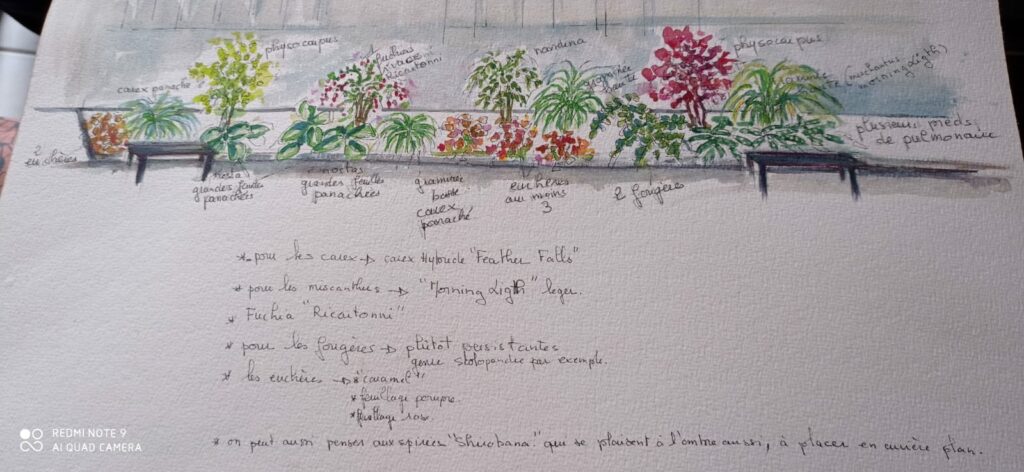 physocarpus
fuchsias
vivace
Ricartonni
nandina
physocarpus
graminée
haute
graminée
haute (miscanthus
morning Ligth)
carex panaché
plusieurs pieds
de pulmonaire
2
euchères
hosta
grandes feuilles
panachées
hostas
grandes feuilles
panachées
graminée
basse
carex
panaché
euchères
au moins
3
2 fougères
*- pour les carex → carex Hybride "Feather Falls"
* pour les miscanthus → "Morning Ligth" leger.
* Fuchia "Ricartonni"
* pour les fougères → plûtot persistantes
genre scolopandre par exemple.
* les euchères → * "caramel"
* feuillage pourpre.
* feuillage rose.
* on peut aussi penser aux spirées "Shirobana" qui se plaisent à l'ombre aussi, à placer en arrière plan.
REDMI NOTE 9
AI QUAD CAMERA